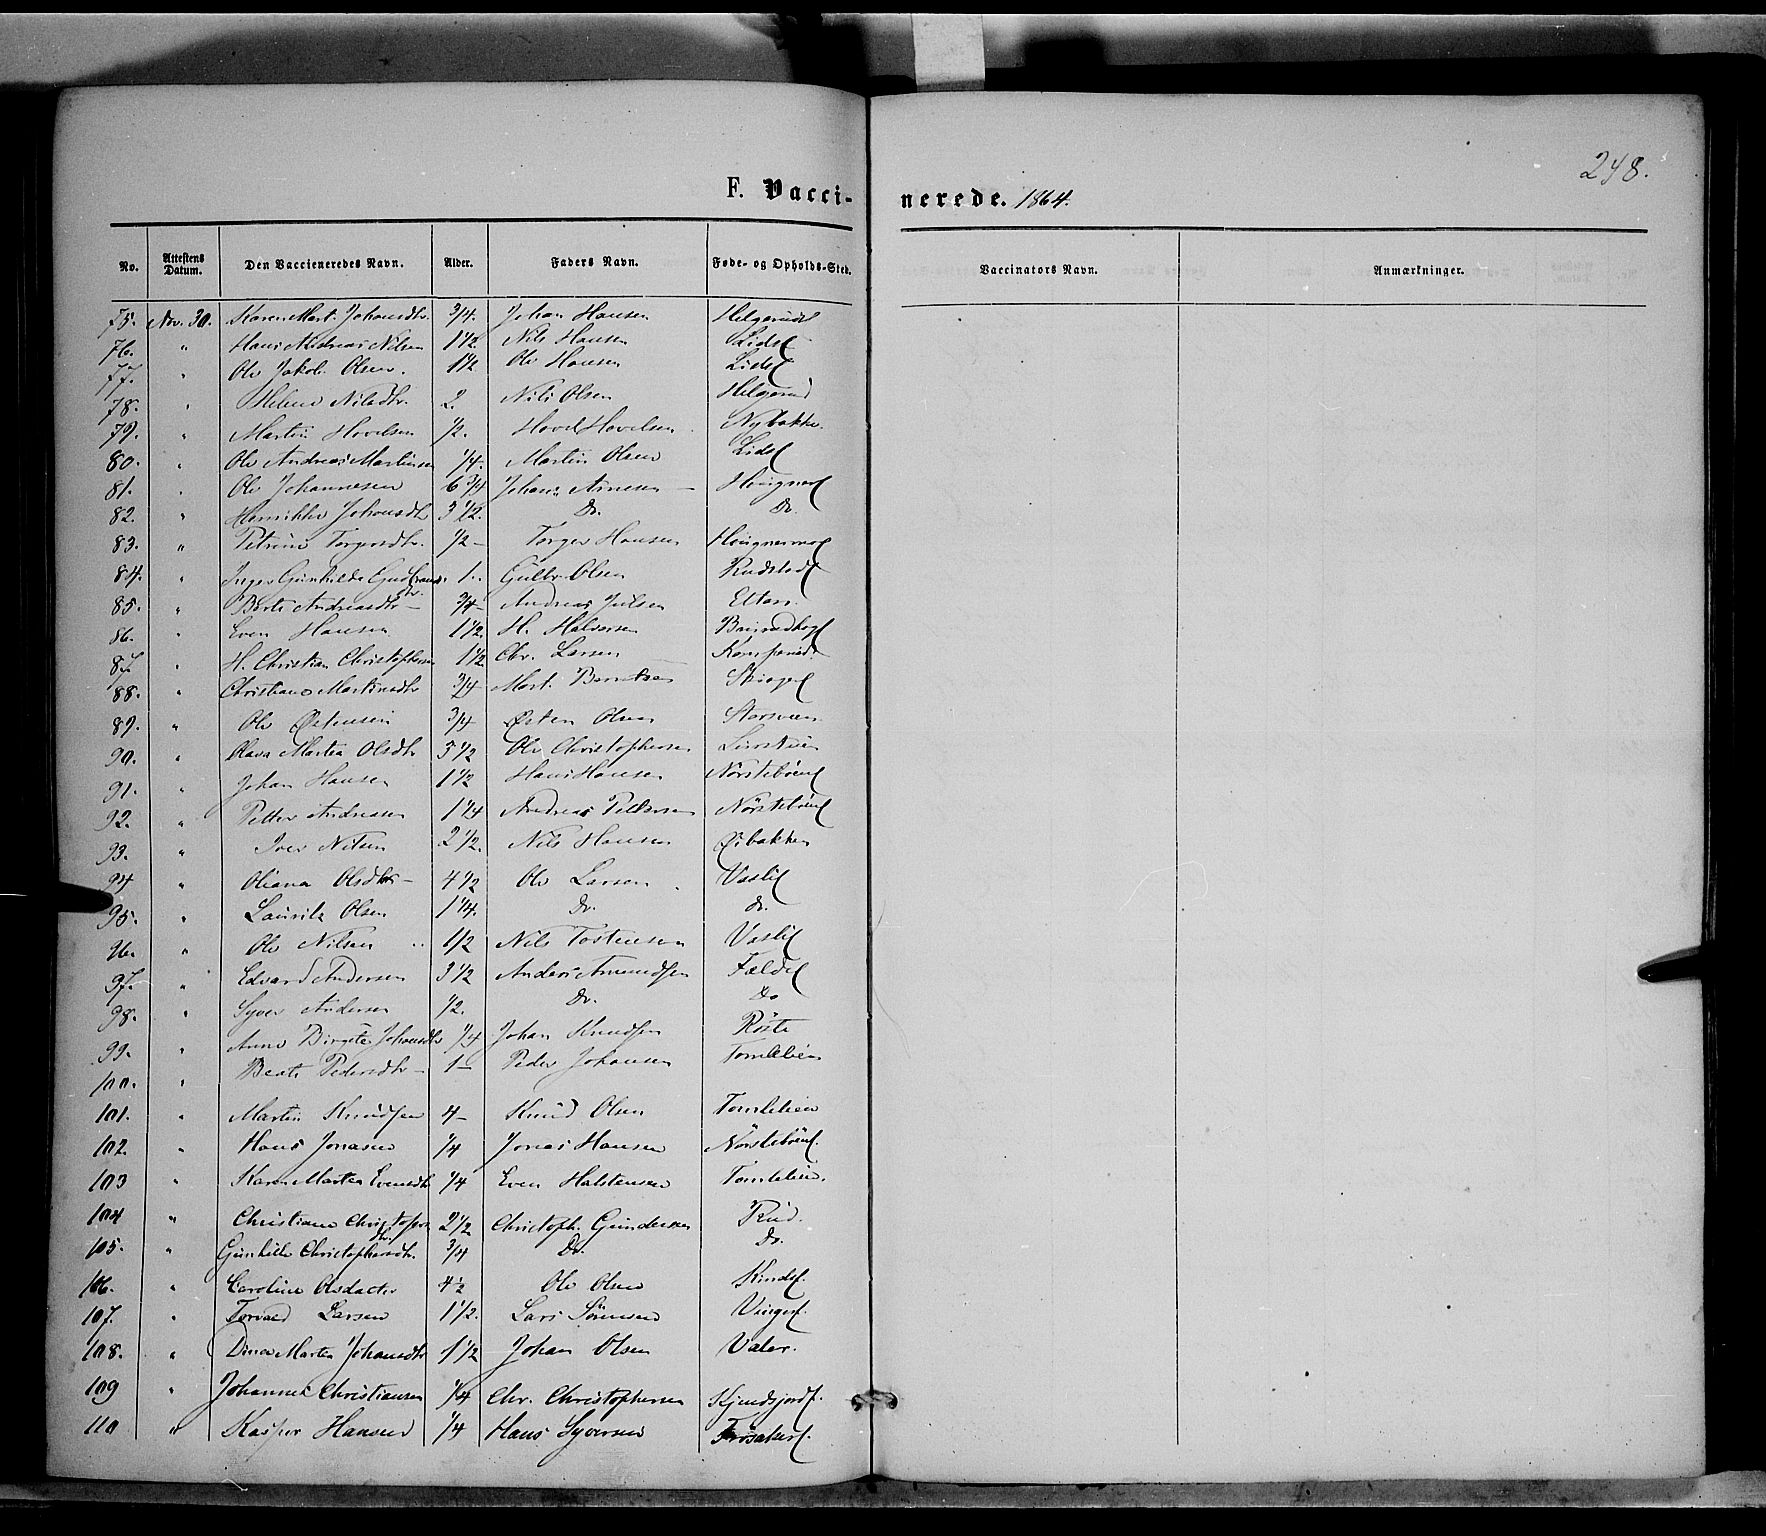 248.
F. Vacci-
nerede. 1864.
No. Attestens Datum. Den Vaccieneredes Navn. Alder. Faders Navn. Føde- og Opholds-Sted. Vaccinators Navn. Anmærkninger.
75. Nov. 30. Karen Mart. Johansdtr. 3/4. Johan Hansen
76. " Hans Andreas Nilsen 1 1/2 Nils Hansen Lids
77. " Ole Jakob Olsen. 1 1/2 Ole Hansen Lids
78. " Helene Nilsdtr. 2. Nils Olsen Helgerud
79. " Martin Hovelsen 1/2. Hovel Hovelsen Nybakke.
80. " Ole Andreas Martinsen 1/4. Martin Olsen Lids
81. " Ole Johannesen 6 3/4 Johans Arnesen
82. " Henrikke Johansdtr 3 1/2. Do. Do.
83. " Petrine Torgersdtr. 1/2 – Torger Hansen
84. " Inger Gunhilde Gudbrands dtr. 1. Gulbr. Olsen Rudstad
85. " Berte Andreasdtr – 3/4 – Andreas Julsen
86. " Even Hansen 1 1/2. H. Halvorsen
87. " H. Christian Christophersen 1 1/2 Chr. Larsen
88. " Christiane Martinsdtr 3/4 Mart. Berntsen
89. " Ole Østensen 3/4 Østen Olsen
90. " Olava Martea Olsdtr 3 1/2 Ole Christophersen
91. " Johan Hansen 1 1/2 Hans Hansen Nörstebøens
92. " Petter Andreasen 1 1/4 Andreas Pettersen Nörstebøens
93. " Iver Nilsen 2 1/2. Nils Hansen
94 " Oliana Olsdtr – 4 1/2 Ole Larsen Vasli
95. " Lauritz Olsen 1 1/4. Do. do.
96. " Ole Nilsen 1/2 Nils Tostensen Vasli
97. " Edvard Andersen 3 1/2 Anders Amundsen
98. " Syver Andersen 1/2. Do. Do
99. " Anne Birgete Johansdtr 1/4 Johan Knudsen Röste
100. " Beate Pedersdtr – 1 – Peder Johansen Tomlelien
101. " Martin Knudsen 4 – Knud Olsen Tomlelien
102. " Hans Jonasen 1/4 Jonas Hansen Nörstebøens.
103 " Karen Martea Evensdtr 1/4 Even Halstensen Tomlelien.
104 " Christiane Christophers dtr. 2 1/2 Christoph. Gundersen Rud.
105. " Gunhilde Christophersdtr. 3/4 Do. Do.
106. " Caroline Olsdatter 4 1/2 Ole Olsen
107. " Torvald Larsen 1 1/2. Lars Sörensen
108. " Dina Martea Johansdtr 1 1/2 Johan Olsen Valer.
109 " Johannes Christiansen 1/4 Chr. Christophersen
110 " Kasper Hansen 1/4 Hans Syversen